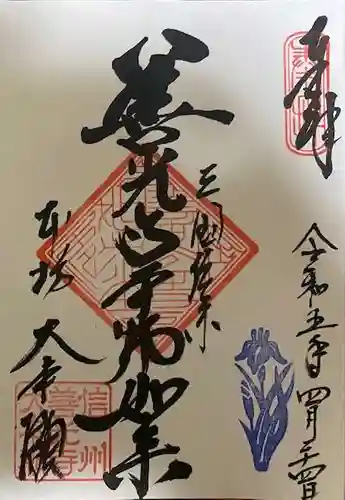 奉拝
令和五年四月二十四日
三国伝来
善光如来
本坊
大本願
信州
善光寺